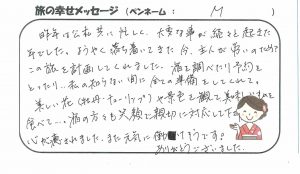 旅の幸せメッセージ (ペンネーム： M )
昨年は公私共に忙しく、大変な事が続々と起きた
年でした。ようやく落ち着いてきた今、主人が
この旅を計画してくれました。宿を調べたり予約を
とったり… 私の知らない間に全て準備をしてくれて。
美しい花(牡丹・チューリップ)や景色を観て、美味しいものを
食べて…。宿の方々も笑顔で親切に対応して下さり
心が癒されました。また元気に働けそうです。
ありがとうございました。